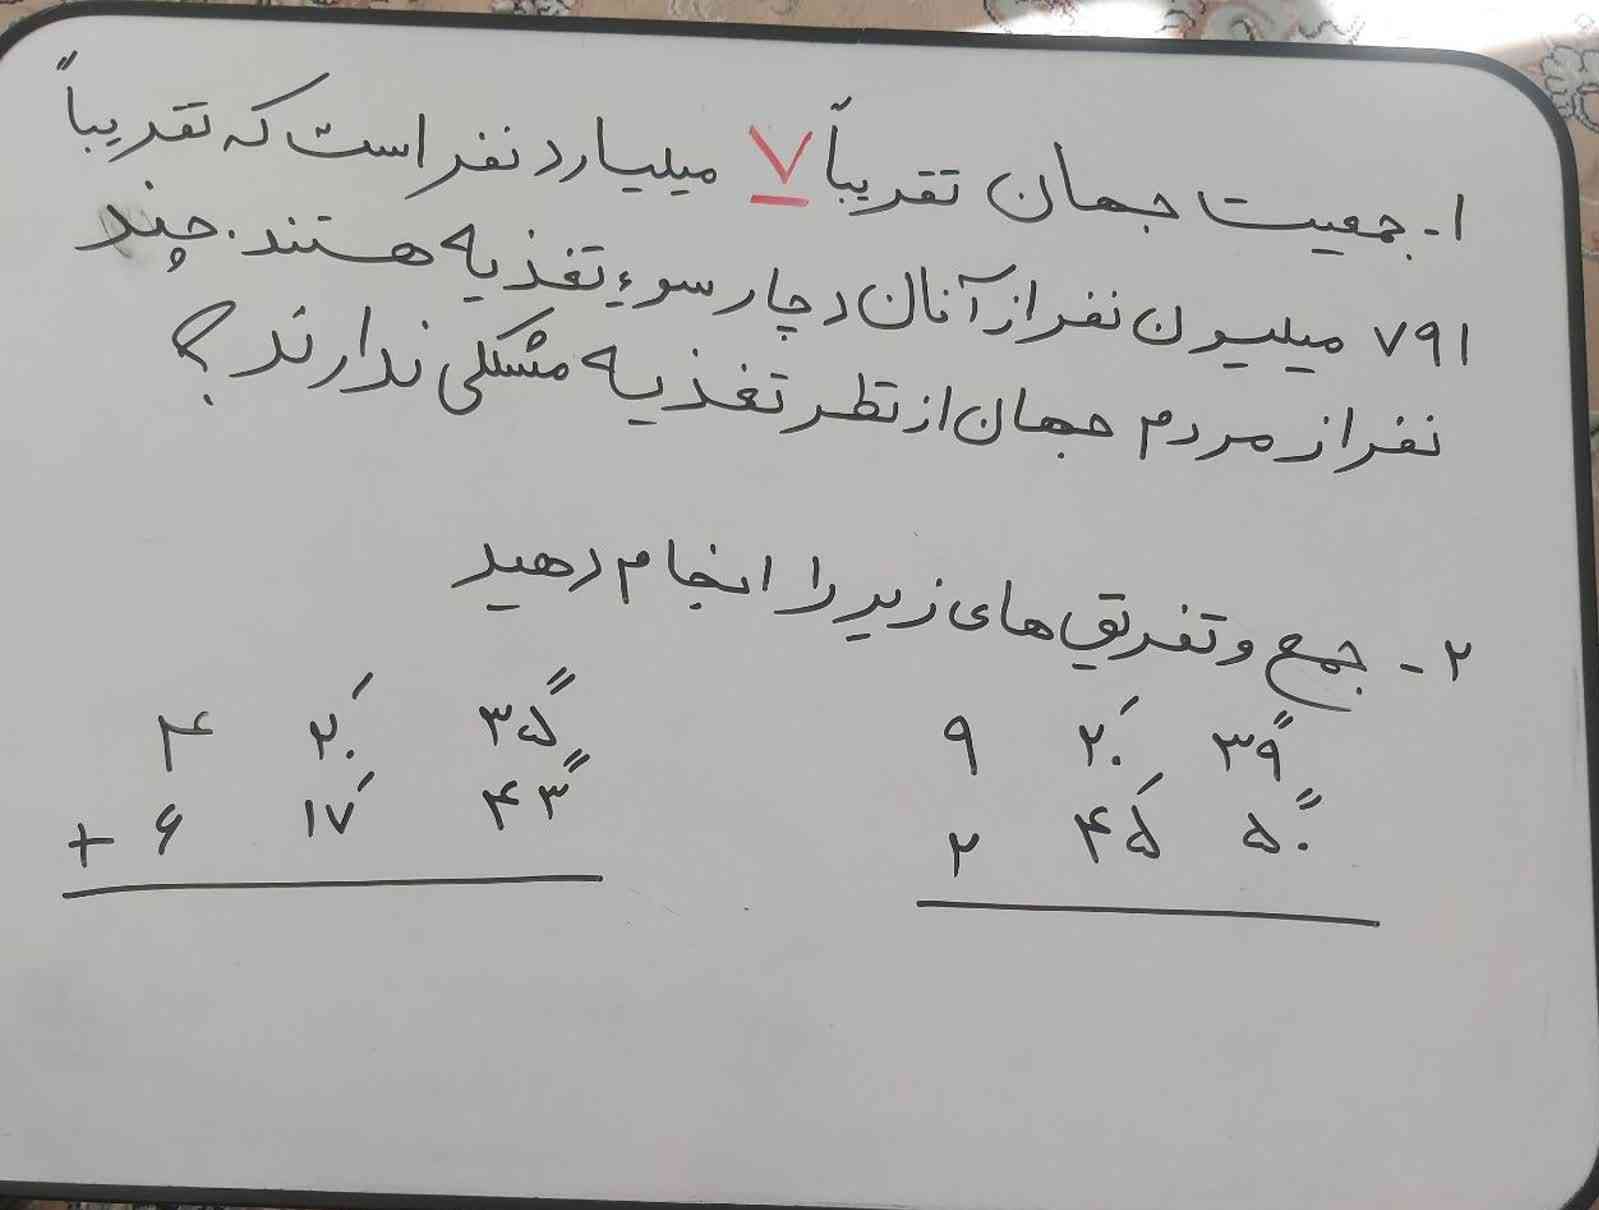 ۱- جمعیت جهان تقریباً ۷ میلیارد نفر است که تقریباً
۷۹۱ میلیون نفر از آنان دچار سوءِ تغذیه هستند. چند
نفر از مردم جهان از نظر تغذیه مشکلی ندارند؟
۲- جمع و تفریق های زیر را انجام دهید
۴ ۲۰′ ۳۵″
+ ۶ ۱۷′ ۴۳″
۹ ۲۰′ ۳۹″
۲ ۴۵′ ۵۰″